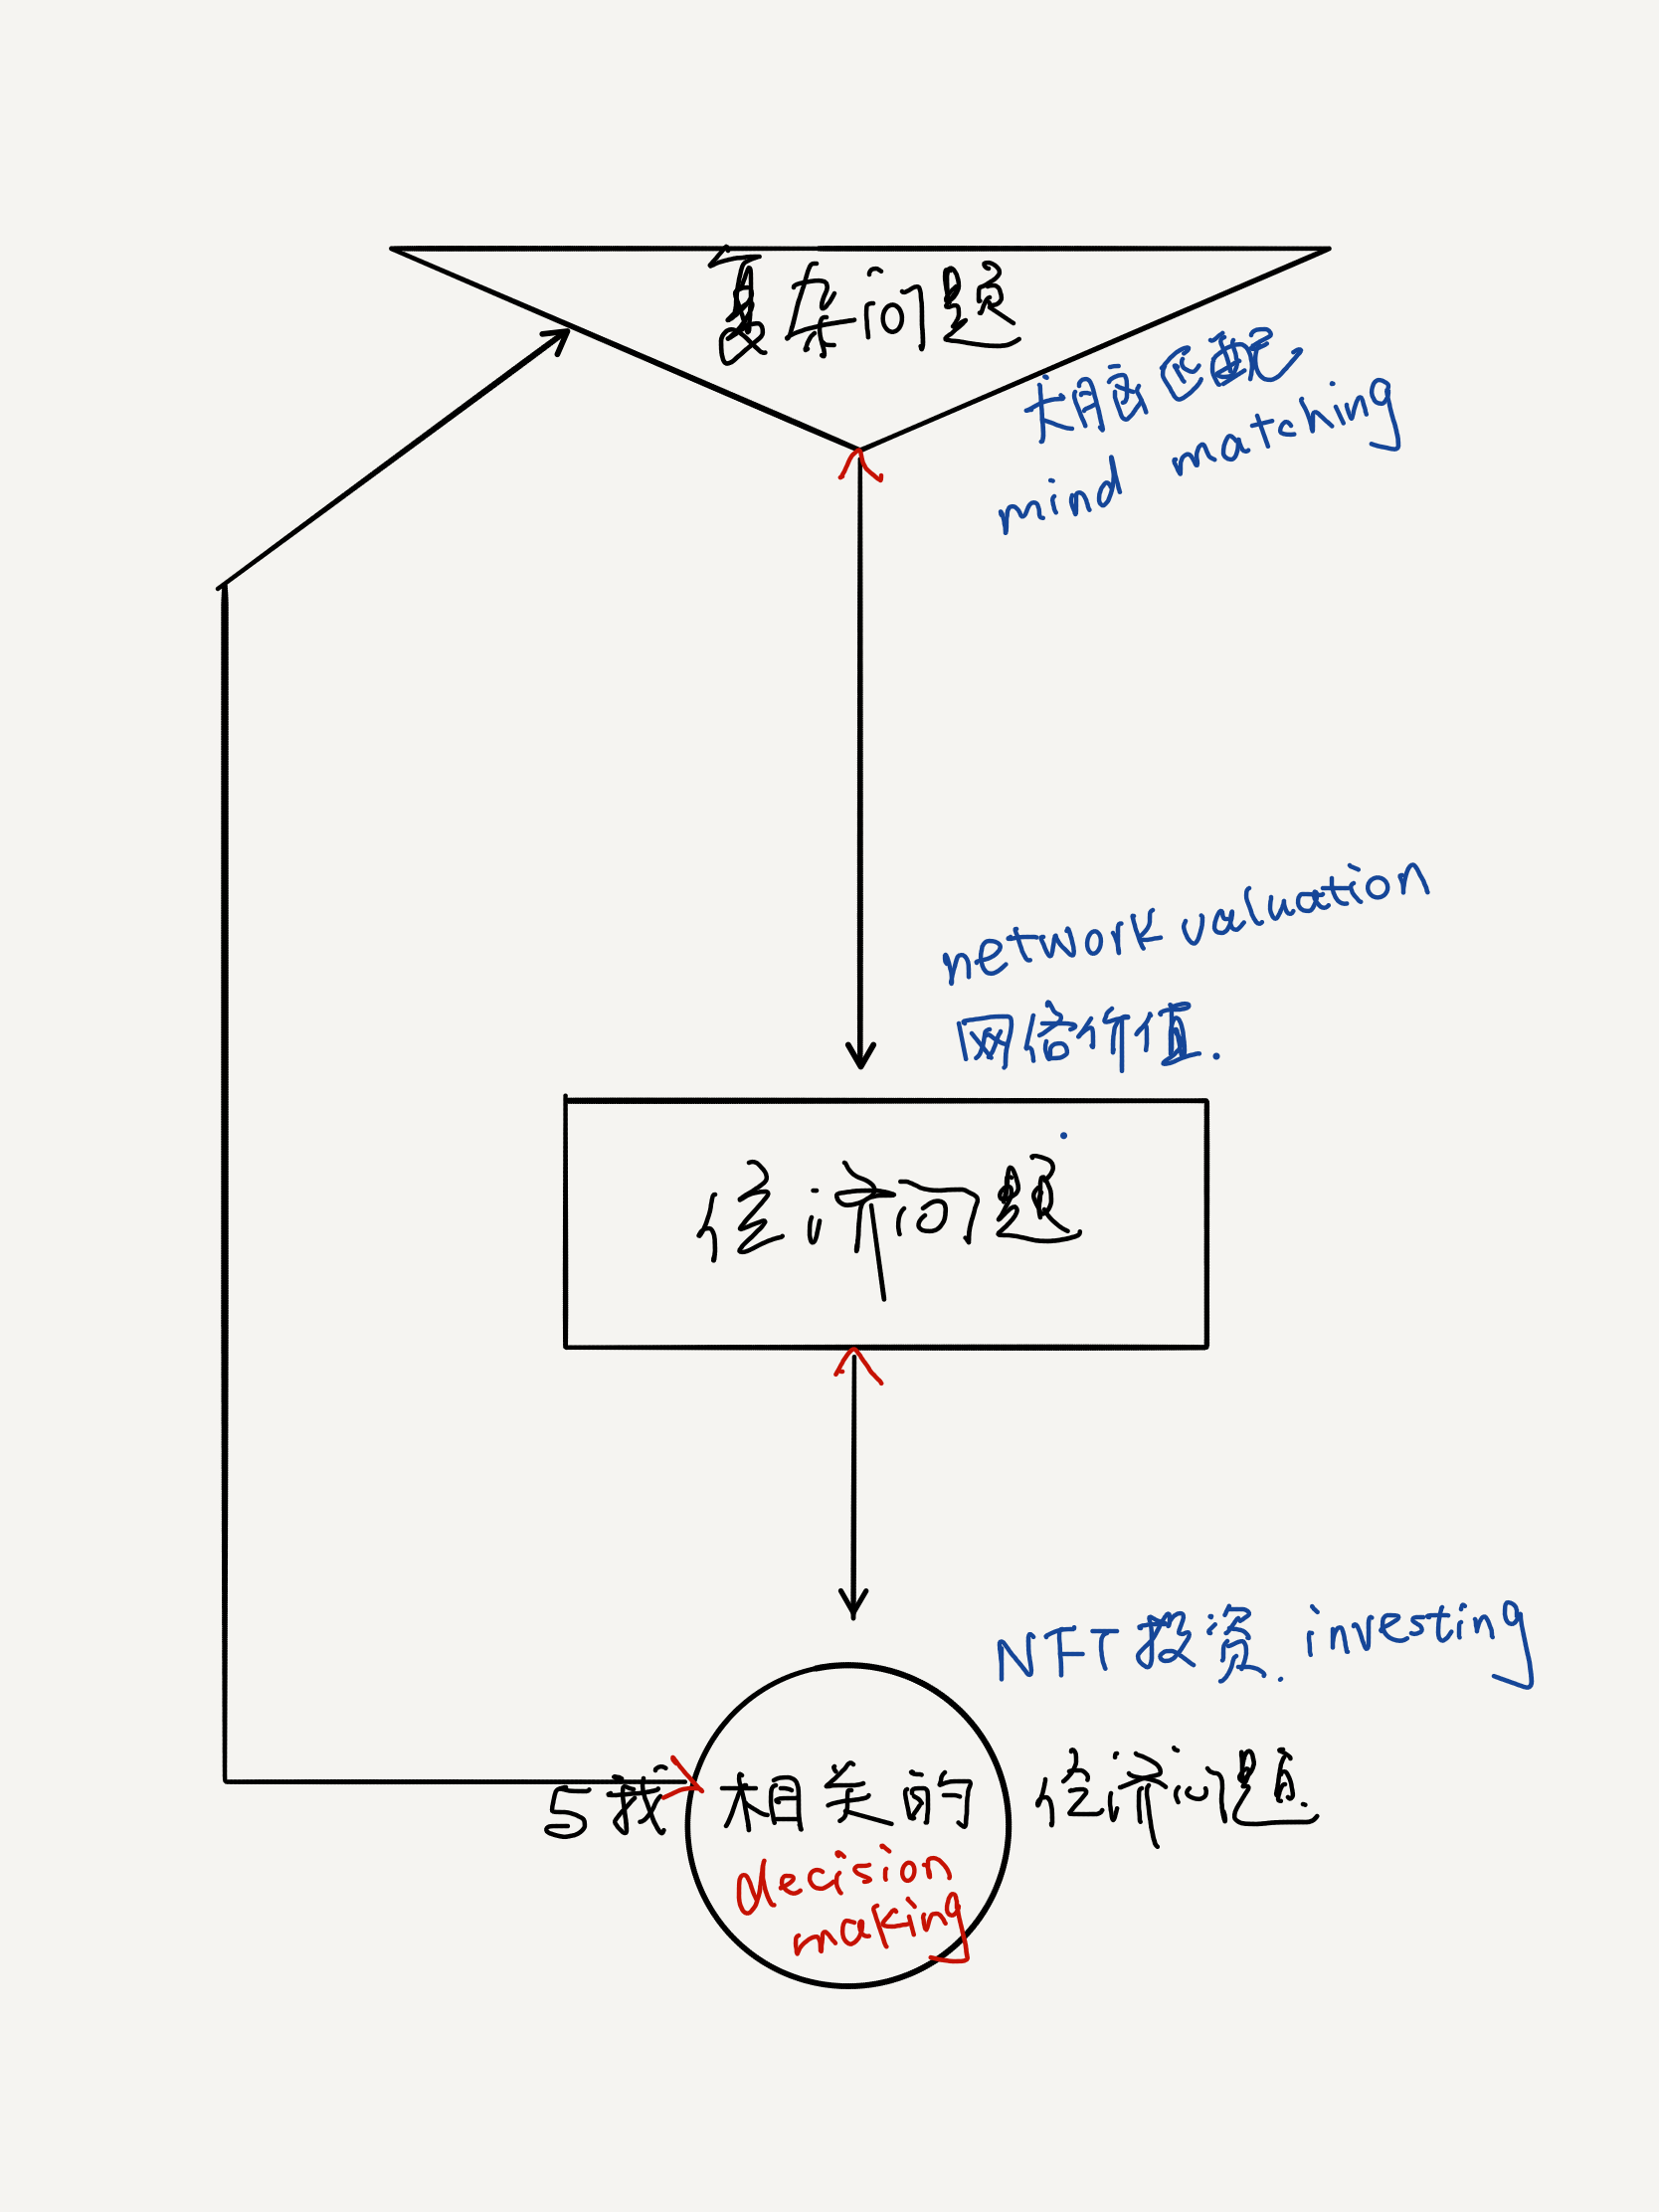 复杂问题
大脑的匹配
mind matching
network valuation
网络价值.
经济问题
NFT 投资. investing
与我相关的 经济问题.
decision
making